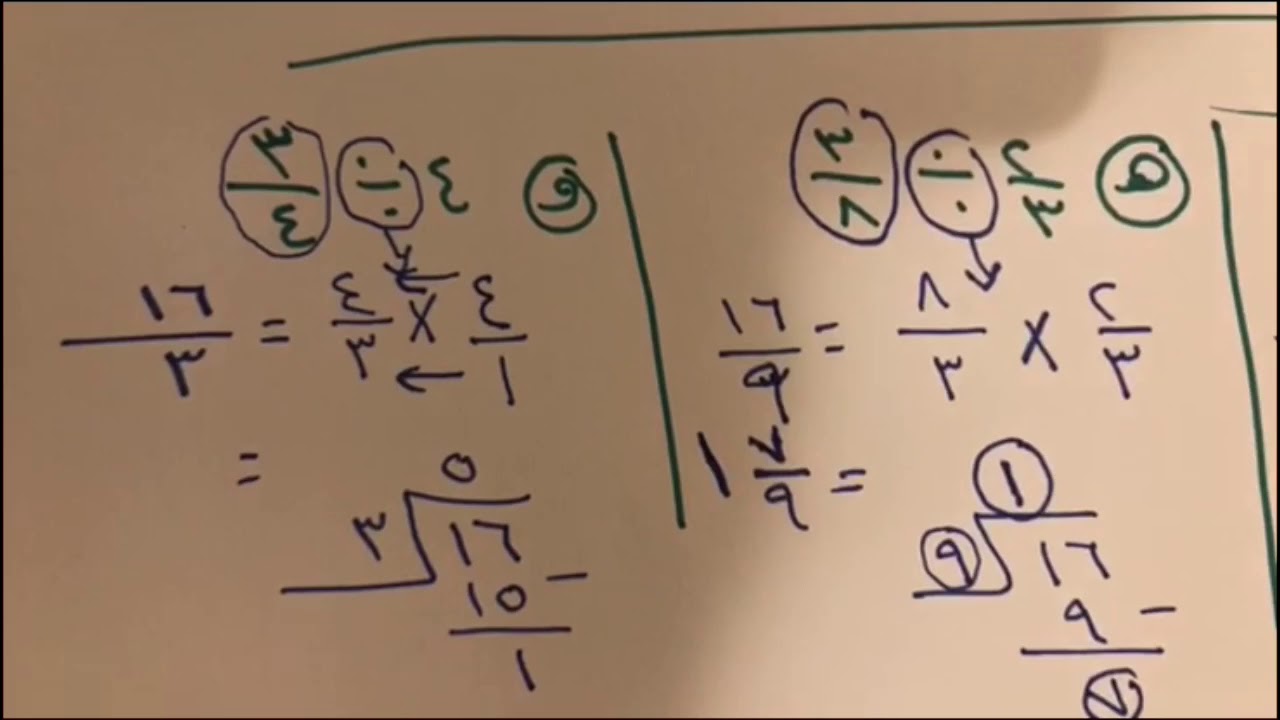 ٩ ٢/٣ ÷ ٣/٨
٢/٣ × ٨/٣ = ١٦/٩
= ١ ٧/٩
١
٩ ١٦
٩ −
٧
٩ ٤ ÷ ٣/٤
٤/١ × ٤/٣ = ١٦/٣
=
٥
٣ ١٦
١٥ −
١